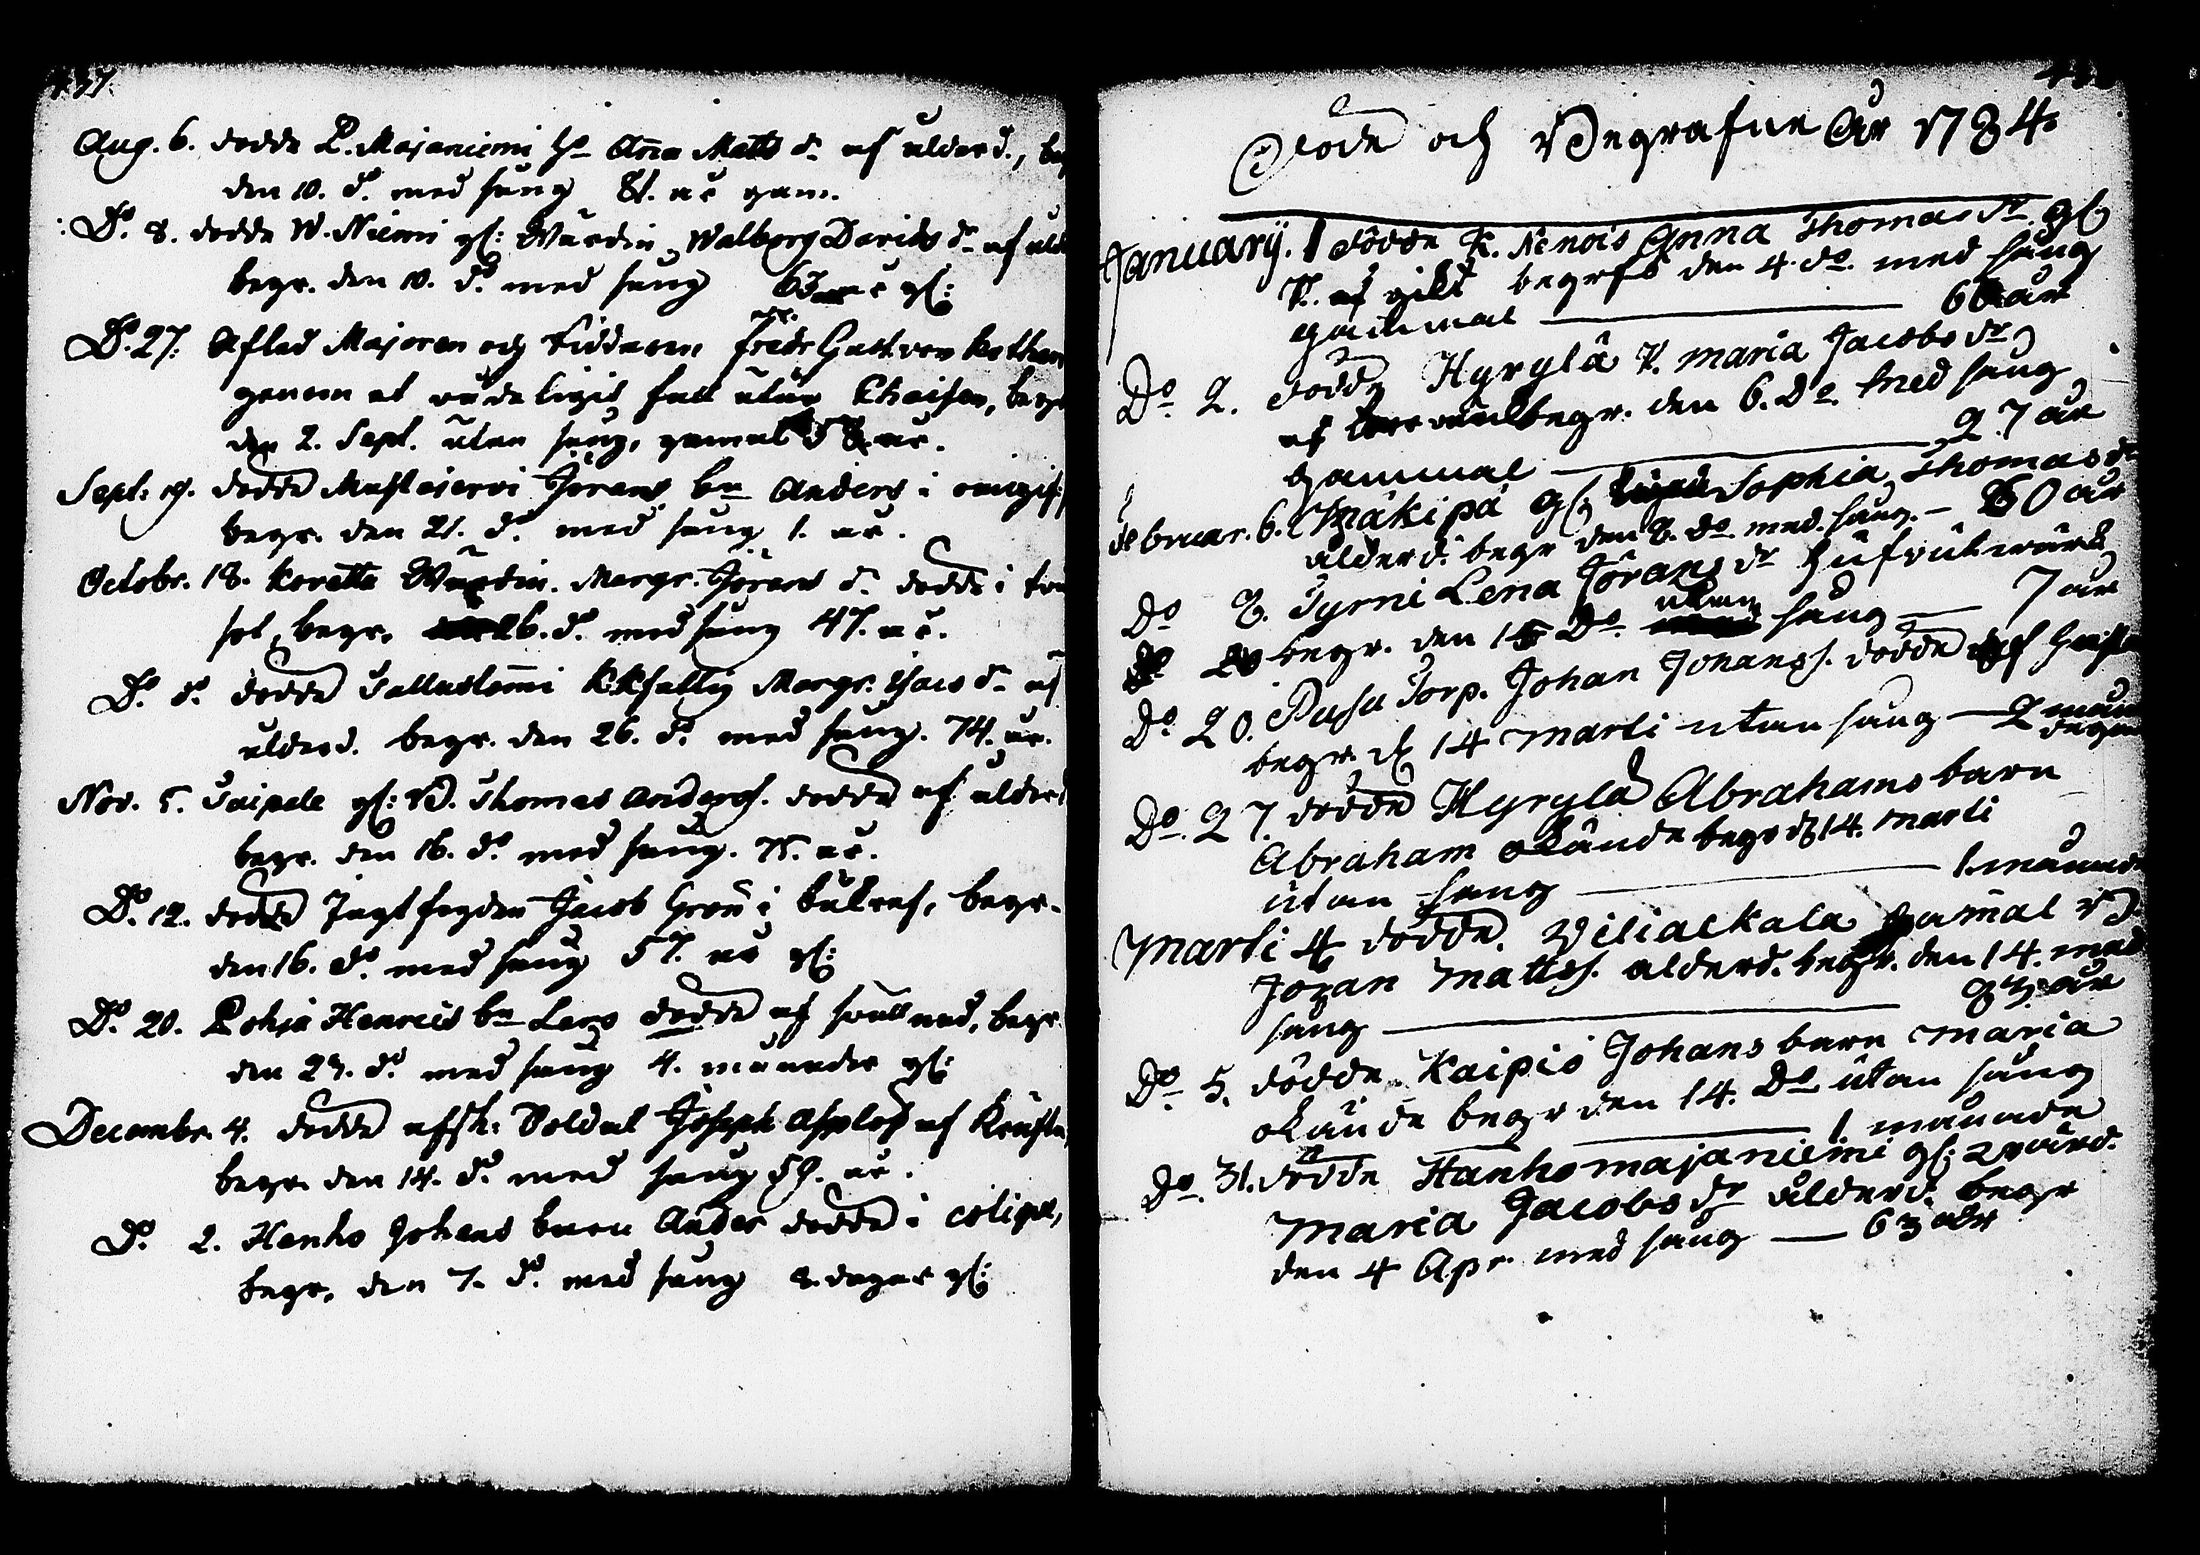 437.
Aug. 6. dödde P. Majaniemi Hu Anna Matts dr. af ålderd.,
den 10. do. med sång 81. år gam.
Do. 8. dödde W. Niemi gl: Wärdin. Walborg Davids dr. af
begr. den 10. do. med sång 63 år gl:
Do. 27. Afled Majoren och Riddaren Gust. von
genom et wådeligit fall utur Chaisen, begr
den 2. Sept. utan sång, gamal 58 år.
Sept: 19. dödde Mustajervi Jörans bn Anders i
begr. den 21. do. med sång 1. år.
Octobr. 18. Korette Wärdin. Margr. Jörans dr. dödde i
sot, begr. 26. do. med sång 47. år.
Do. do. dödde Sallastommi Margr. Isacs dr. af
ålderd. begr. den 26. do. med sång. 74. år.
Nov. 5. Saipale gl: B. Thomas Anderss. dödde af ålderd
begr. den 16. do. med sång. 75. år.
Do. 12. dödde Jagtfogden Jacob Grön i begr.
den 16. do. med sång 57. år gl:
Do. 20. Pohja Henrics bn Lars dödde af begr.
den 23. do. med sång 4. månader gl:
Decembr. 4. dödde afsk: Soldat Joseph af
begr. den 14. do. med sång 59. år.
Do. 2. Hanho Johans barn Ander dödde i
begr. den 7. do. med sång 8. dagar gl:
Döde och Begrafne År 1784.
Januarij. 1 dödde K. Anna Thomas dr. gl
begrfs den 4. do. med sång
gammal 6 år
Do. 2. dödde Hyrylä Maria Jacobs dr
af begr. den 6. Do. med sång
gammal 27 år
Februar. 6. Mäkipä gl Sophia Thomas dr
ålderd. begr den 8. do. med. sång. 60 år
Do 8. Tyrni Lena Jörans dr hufvudwärk
begr. den 15 Do. utan sång 7 år
Do 20. Pusu Torp. Johan Johanss. dödde af
begr. d 14 Marti utan sång 2
dagar
Do. 27. dödde Hyrylä Abrahams barn
Abraham okände begr d 14. Marti
utan sång 1. månad
Marti 4 dödde. Viliackala gamal B
Jöran Mattss. ålderd. begr. den 14. med
sång 83 år
Do. 5. dödde Kaipio Johans barn Maria
okände begr den 14. Do utan sång
1 månade
Do. 31. dödde Hanho majaniemi gl: wärd.
Maria Jacobs dr ålderd. begr
den 4 Apr. med sång 63 år